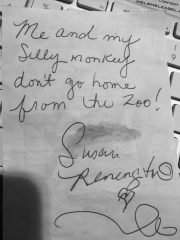 Me and my
Silly monkey
don't go home
from the Zoo!
Susan
Remington